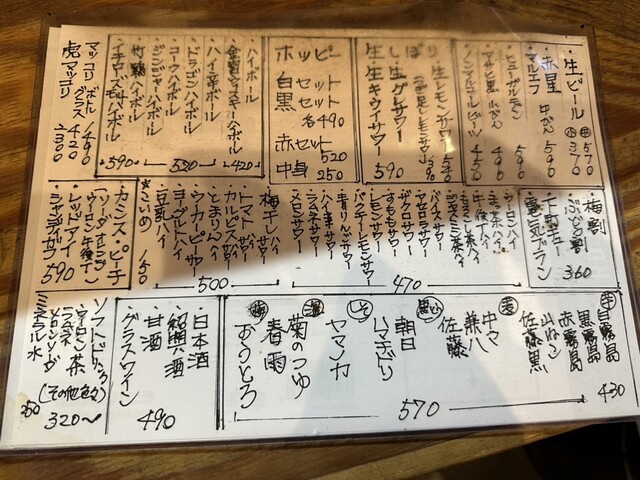 ・生ビール 中570 小370
・赤星
・マルエフ 中びん 590
・ヒューガルデン 590
・アサヒ黒 小びん 490
・ノンアルコールビール 450
・生レモンサワー 540
・生グレサワー
・生キウイサワー 590
ホッピー
白セット
黒セット 各490
赤セット 520
中身 250
・ハイボール
・ハイ辛ボール
・ドラゴンハイボール
・コークハイボール
・ジンジャーハイボール
・竹鶴ハイボール
・イチローズモルトハイボール
590
520
420
マッコリ ボトル 1490
グラス 420
虎マッコリ 1300
・梅割
・ぶどう割
・下町ハイボール
・電気ブラン 360
・ウーロンハイ
・緑茶ハイ
・午後ティーハイ
・ジャスミン茶ハイ
・バイスサワー
・すももサワー
・レモンサワー
・パンチレモンサワー
・青りんごサワー
・ハイ辛サワー
・ラムネサワー
・メロンサワー
470
・梅干しサワー
・トマトサワー
・カルピスサワー
・ウーカーピーサワー
・とまりんハイ
・ヨーグルトハイ
・豆乳ハイ
500
★こいめ +50
・カシス・ピーチ
(ソーダ・オレンジ
ウーロン・午後T)
・レッドアイ
・シャンディガフ
590
芋
白霧島
黒霧島
赤霧島
430
山ねこ
佐藤黒
麦
中々
兼八
佐藤
黒糖
朝日
しそ
570
菊のつゆ
梅
春雨
おうとろ
日本酒
紹興酒
甘酒
グラスワイン
490
ソフトドリンク
・ウーロン茶
・ラムネ
・メロンソーダ
(その他色々)
320〜
ミネラル水
250